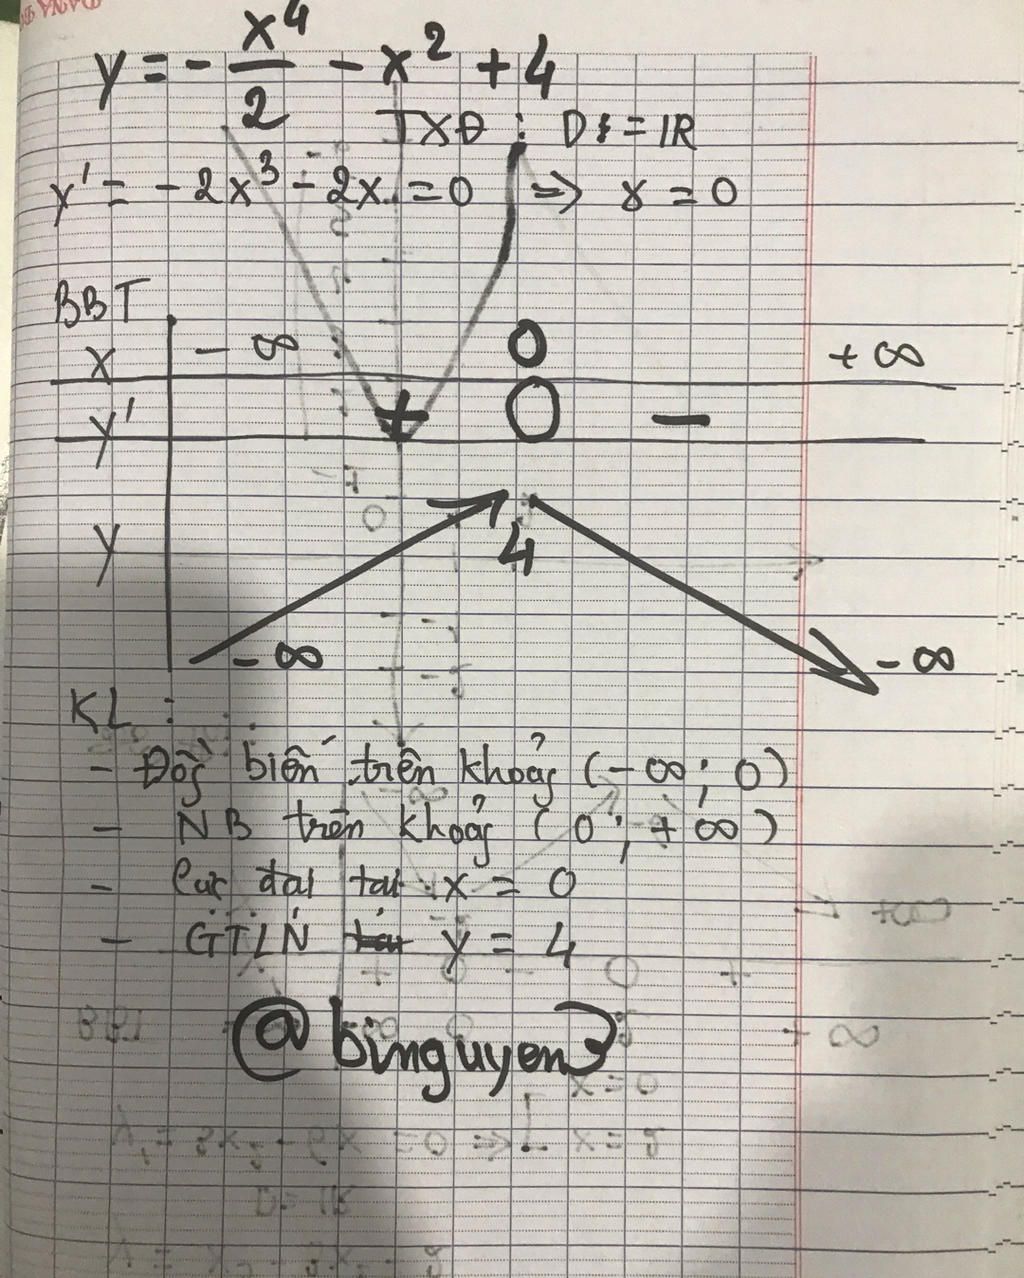 y = - x⁴/2 - x² + 4
TXĐ : Df = IR
y' = - 2x³ - 2x = 0 => x = 0
BBT
x - ∞ 0 + ∞
y' + 0 -
y 4
- ∞ - ∞
KL :
- Đồg biến trên khoảg (- ∞ ; 0)
- NB trên khoảg (0 ; + ∞)
- Cực đại tại x = 0
- GTLN y = 4
@binguyen3